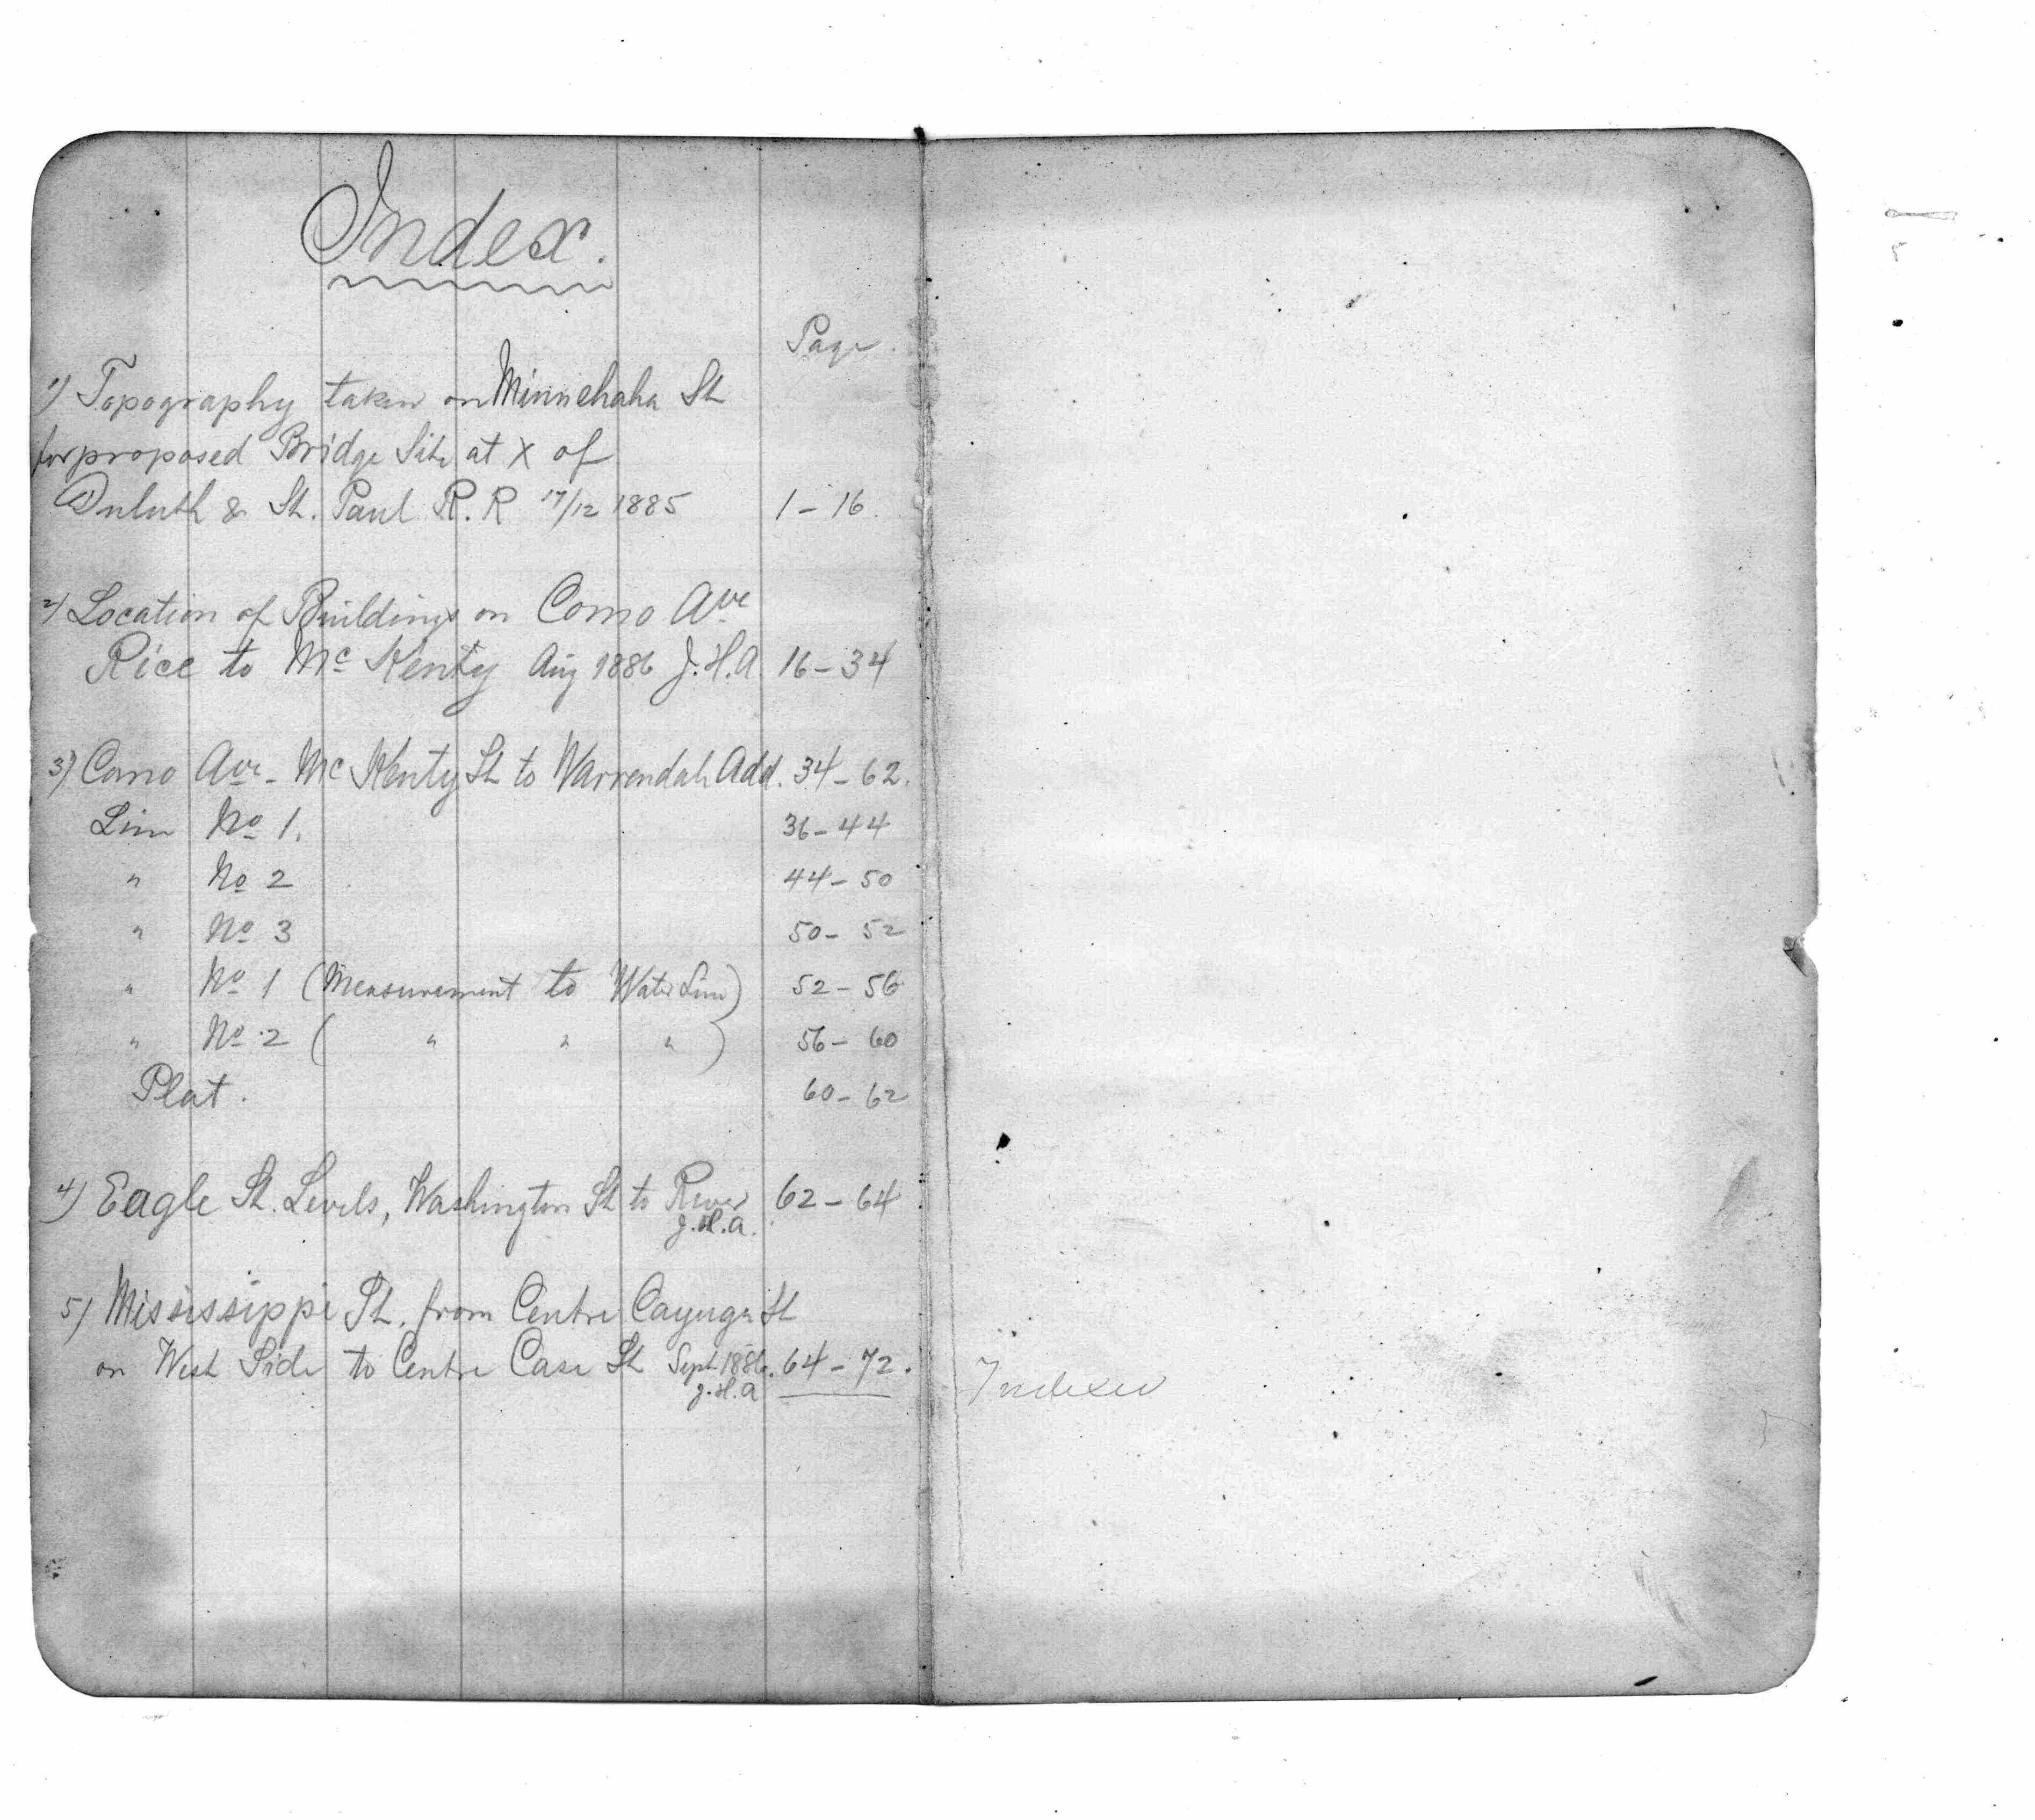 Index.
Page.
1) Topography taken on Minnehaha St
for proposed Bridge Site at X of
Duluth & St. Paul R.R 17/12 1885 1 - 16.
2) Location of Buildings on Como Ave
Rice to Mc Kenty Aug 1886 J.H.A. 16 - 34
3) Como Ave - Mc Kenty St to Warrendah Add. 34 - 62.
Line No 1. 36 - 44
" No 2 44 - 50
" No 3 50 - 52
" No 1 (Measurement to Water Line) 52 - 56
" No 2 ( " " " ) 56 - 60
Plat. 60 - 62
4) Eagle St. Levels, Washington St to River 62 - 64
J.H.A.
5) Mississippi St. from Centre Cayuga St
on West Side to Centre Case St Sept 1886. 64 - 72.
J.H.A
Indexed